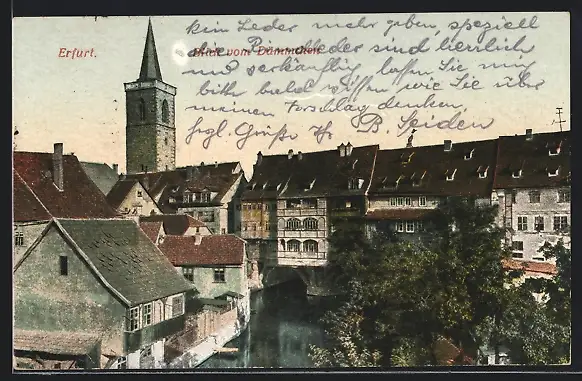 kein Leder mehr geben, speziell
alle Rindleder sind lieferlich
Erfurt. Blick vom Dämmchen.
und verkäuflich lassen Sie mich
bitte bald wissen wie Sie über
meinen Vorschlag denken,
Hrzl. Grüße Ihr B. Seiden